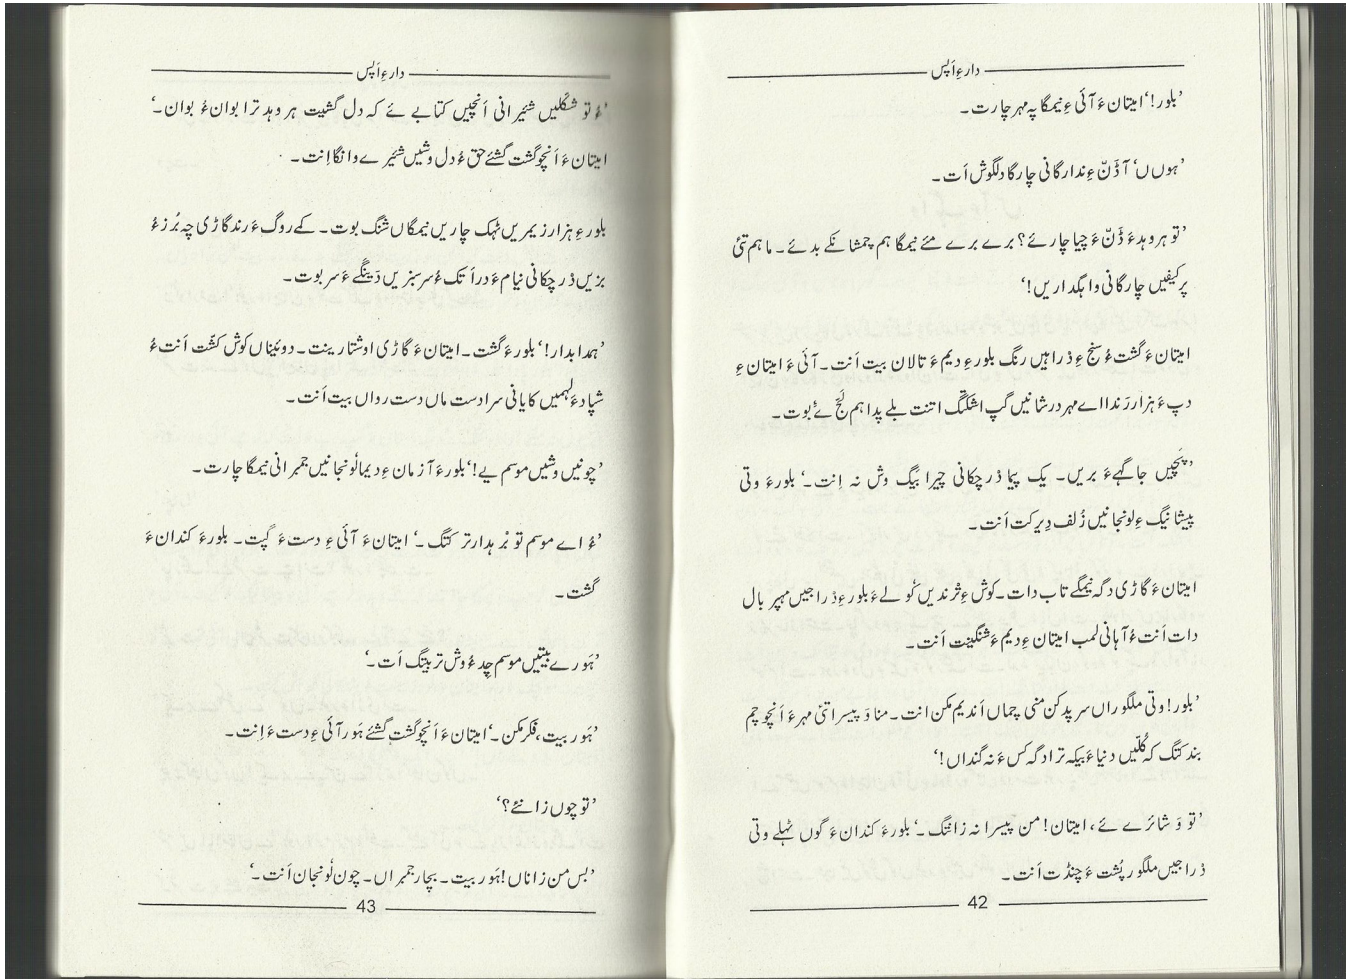 دارءِ اَپس
’بلور!‘ امیتان ءَ آئی ءِ نیمگا پہ مہر چارت۔
’ہوں ں‘ آ ڈَنّ ءِ ندارگانی چارگا دلگوش اَت۔
’تو ہر وہد ءَ ڈَنّ ءَ چیا چارئے؟ برے برے مئے نیمگا ہم چمشانکے بدئے۔ ما ہم تئی
پُر کیفیں چارگانی واہگداریں!‘
امیتان ءَ گشت ءُ سنج ءِ ڈراہیں رنگ بلور ءِ دیم ءَ تالان بیت اَنت۔ آئی ءَ امیتان ءِ
دپ ءَ ہزار رَند اے مہر درشانیں گپ اشکتگ اتنت بلے پدا ہم لَجّ ئے بوت۔
’پَچّیں جاگہے ءَ بریں۔ یک پیما ڈرچکانی چیرا بیگ وش نہ اِنت۔‘ بلور ءَ وتی
پیشانیگ ءِ لونجانیں زُلف دِیر کت اَنت۔
امیتان ءَ گاڑی دگہ نیمگے تاب دات۔ کوش ءِ ترندیں گولے ءَ بلور ءِ ڈراجیں مہپر بال
دات اَنت ءُ آہانی لمب امیتان ءِ دیم ءَ شنگینت اَنت۔
’بلور! وتی ملگوراں سرپد کن منی چماں اَندیم مکن انت۔ منا وَ پیسرا تئی مہر ءَ اَنچو چم
بند کتگ کہ گُلّیں دنیا ءَ بیکہ ترا دگہ کس ءَ نہ گنداں!‘
’تو وَ شائرے ئے، امیتان! من پیسرا نہ زانتگ۔‘ بلور ءَ کندان ءَ گوں ٹہلے وتی
ڈراجیں ملگور پُشت ءَ چنڈت اَنت۔
42
دارءِ اَپس
’ءُ تو شکلیں شئیرانی اَنچیں کتابے ئے کہ دل گشیت ہر وہد ترا بوان ءُ بوان۔‘
امیتان ءَ اَنچو گشت گشئے حق ءُ دل وشیں شئیرے وانگا اِنت۔
بلور ءِ ہزار زیمریں ٹہک چاریں نیمگاں شنگ بوت۔ کے روگ ءَ رند گاڑی چہ بُرز ءُ
بزیں ڈرچکانی نیام ءَ دراَتک ءُ سرسبزیں دَینگے ءَ سر بوت۔
’ہمدا بدار!‘ بلور ءَ گشت۔ امیتان ءَ گاڑی اوشتارینت۔ دوئیناں کوش کشّت اَنت ءُ
شپاد ءَ لہمیں کایانی سرا دست ماں دست رواں بیت اَنت۔
’چونیں وشیں موسم یے!‘ بلور ءَ آزمان ءِ دیما لونجانیں جمبرانی نیمگا چارت۔
’ءُ اے موسم تو بُر ہدار تر کتگ۔‘ امیتان ءَ آئی ءِ دست ءَ گپت۔ بلور ءَ کندان ءَ
گشت۔
’ہَور ے بیتیں موسم چِد ءُ وش تر بیتگ اَت۔‘
’ہَور بیت، فکر مکن۔‘ امیتان ءَ اَنچو گشت گشئے ہَور آئی ءِ دست ءَ اِنت۔
’تو چوں زانئے؟‘
’بس من زاناں! ہَور بیت۔ بچار جمبراں۔ چون لونجان اَنت۔‘
43